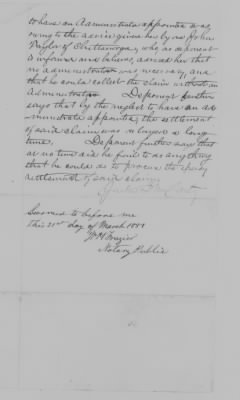 to have an Administrator appointed was
owing to the advice given her by one John
Taylor of Chattanooga, who as deponent
is informed and believes, advised her that
no administration was necessary, and
that he could collect the claim without an
Administrator Deponent further
says that by the neglect to have an ad-
ministrator appointed, the settlement
of said claim was delayed a long
time. Deponent further says that
at no time did he fail to do anything
that he could do to procure the speedy
settlement of said claim
Sworn to before me
this 21st day of March 1881
Wm Frazier
Notary Public